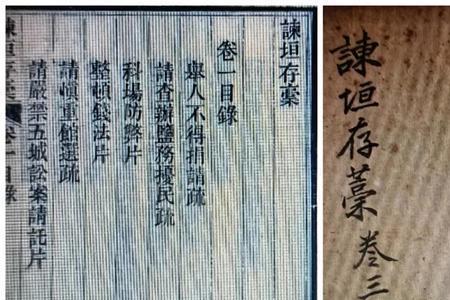 諫垣存稾
卷一目錄
舉人不得捐請疏
請查辦鹽務擾民疏
科場防弊片
整頓錢法片
請愼重館選疏
請嚴禁五城訟案請託片
諫垣存稾 卷一目錄
諫垣存藁卷三